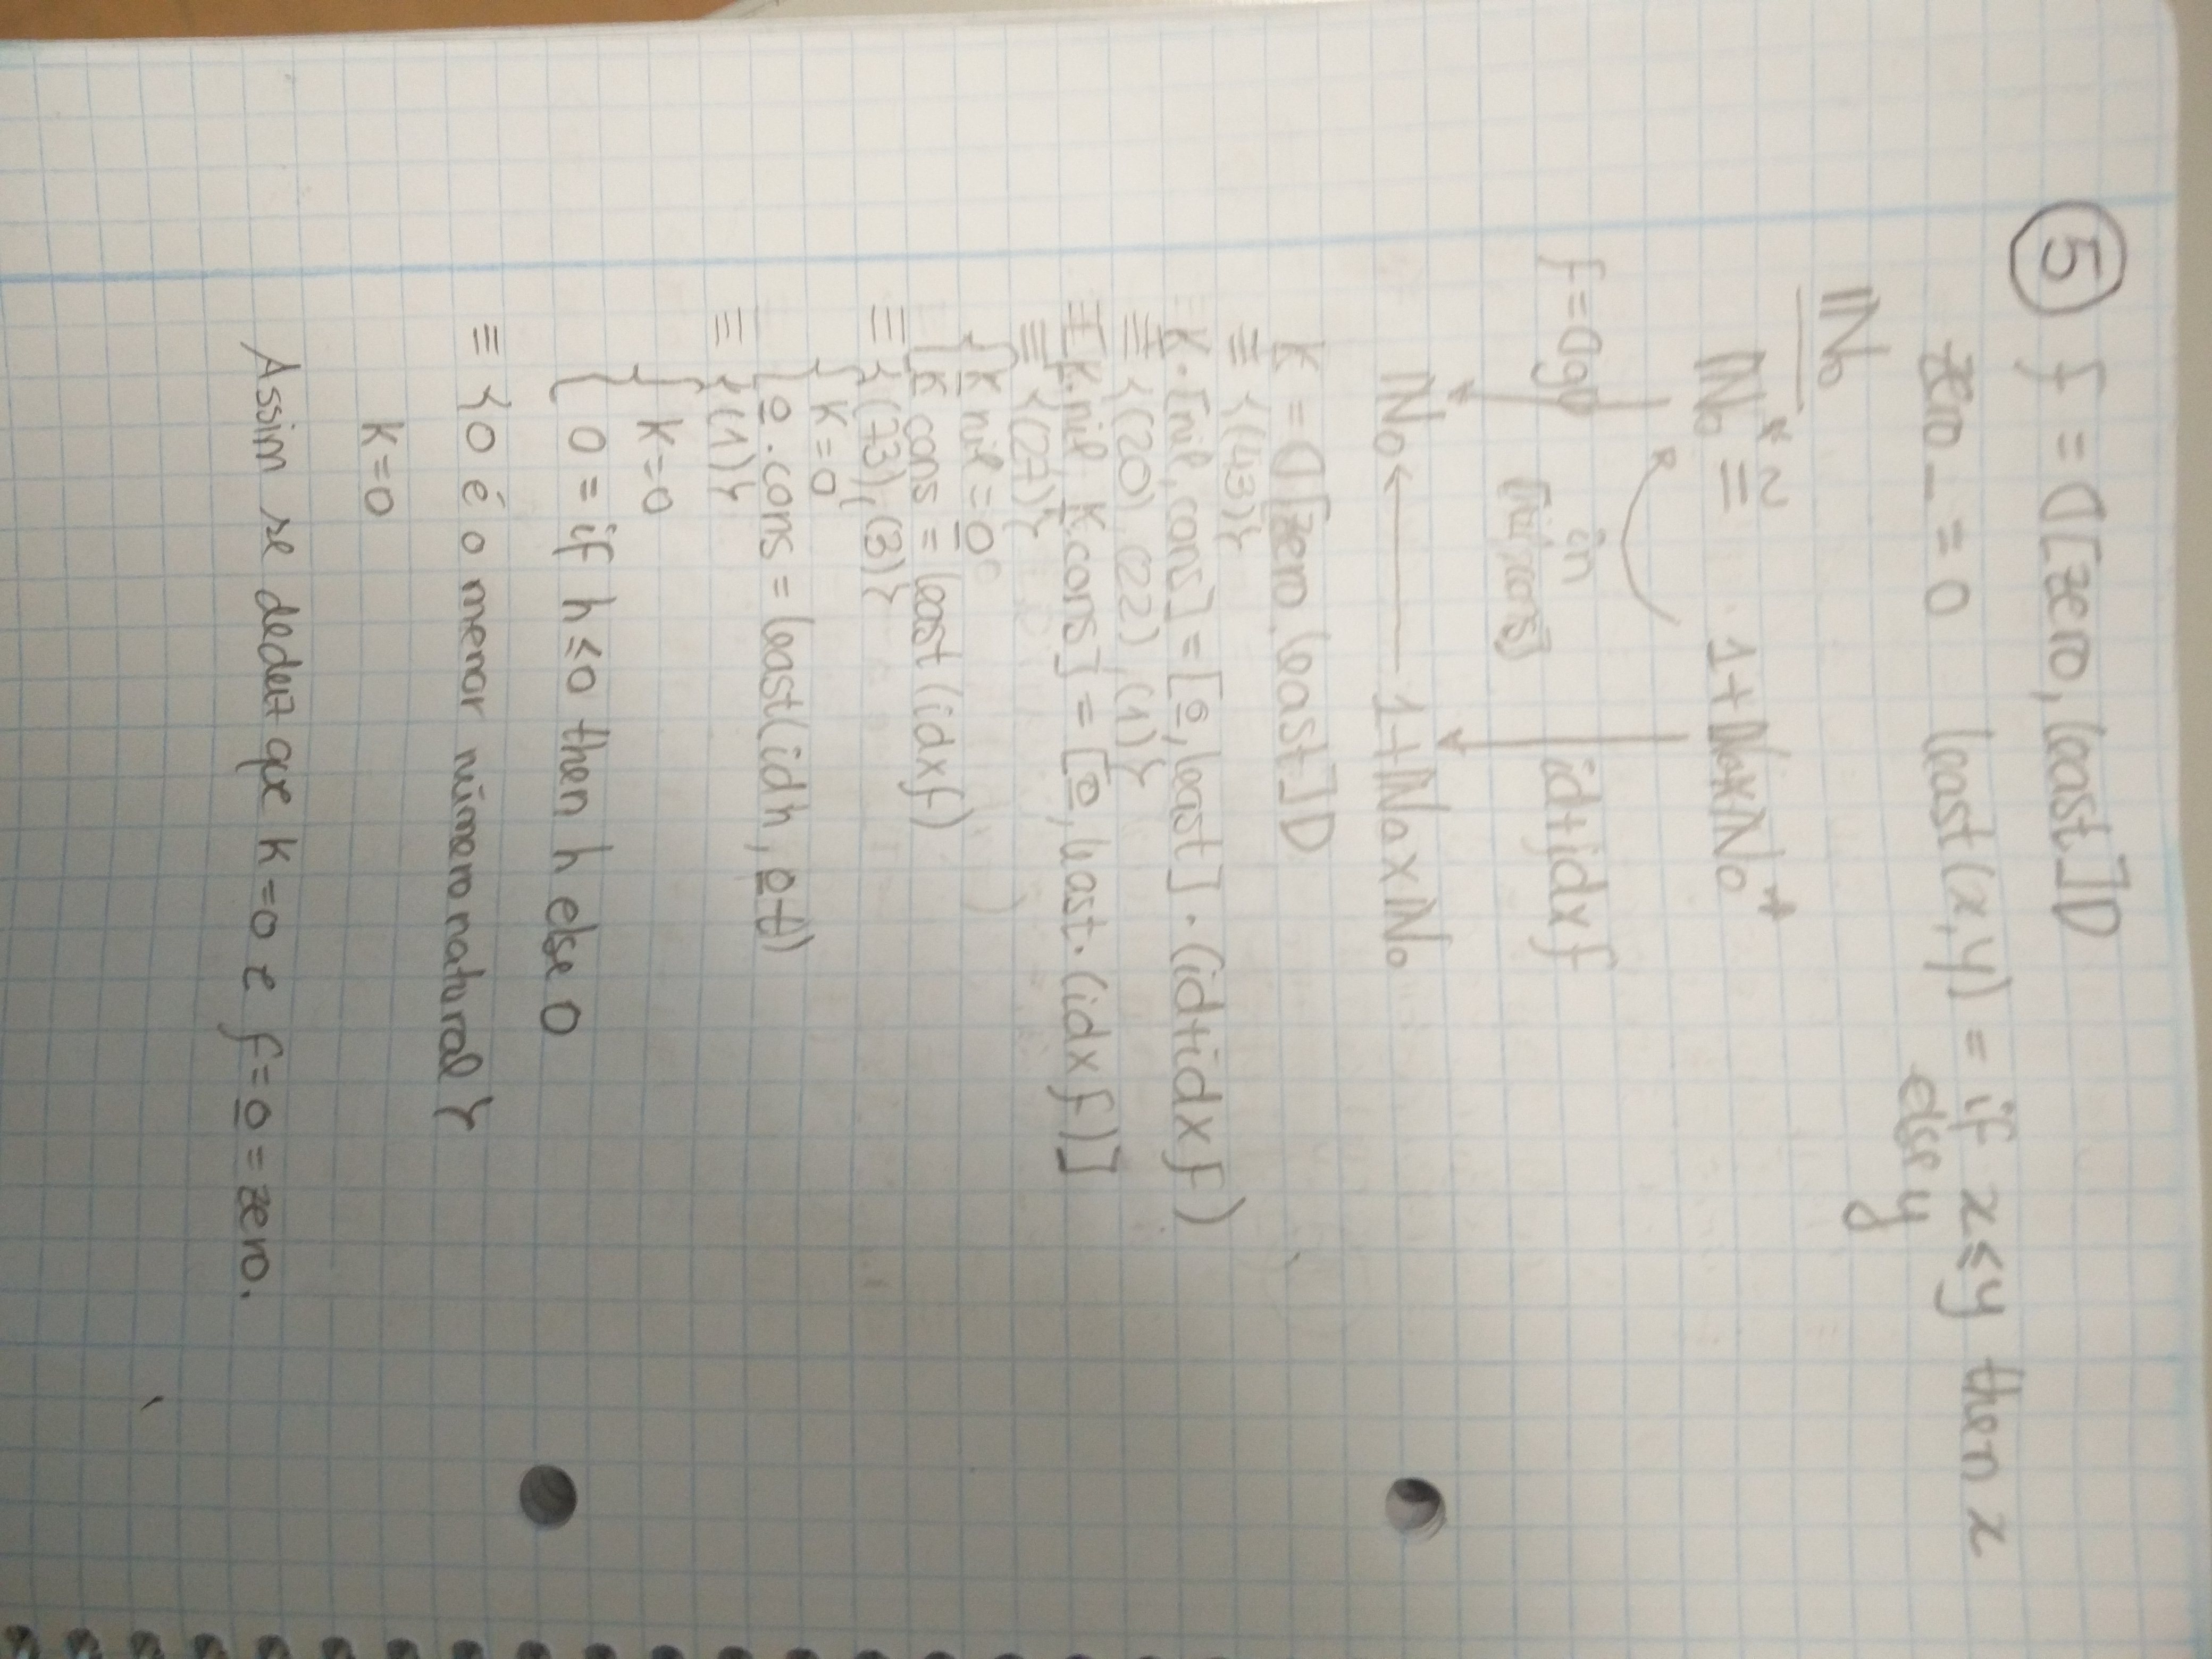 5 f = ⦇[zero, least]⦈
zero _ = 0 least(x,y) = if x≤y then x
else y
ℕ₀
ℕ₀* ≅ 1+ℕ₀×ℕ₀*
f=⦇g⦈ in id+id×f
[nil,cons]
ℕ₀ ← 1+ℕ₀×ℕ₀
k = ⦇[zero, least]⦈
≡ {(43)}
k·[nil, cons] = [0̲, least] · (id+id×f)
≡ {(20), (22), (1)}
≡ [k.nil, k.cons] = [0̲, least·(id×f)]
≡ {(27)}
{ k̲ nil = 0̲
{ k̲ cons = least(id×f)
≡ {(73), (3)}
{ k=0
{ 0̲.cons = least(id h, 0̲ t)
≡ {(1)}
{ k=0
{ 0 = if h≤0 then h else 0
≡ {0 é o menor número natural}
k=0
Assim se deduz que k=0 e f=0̲=zero.